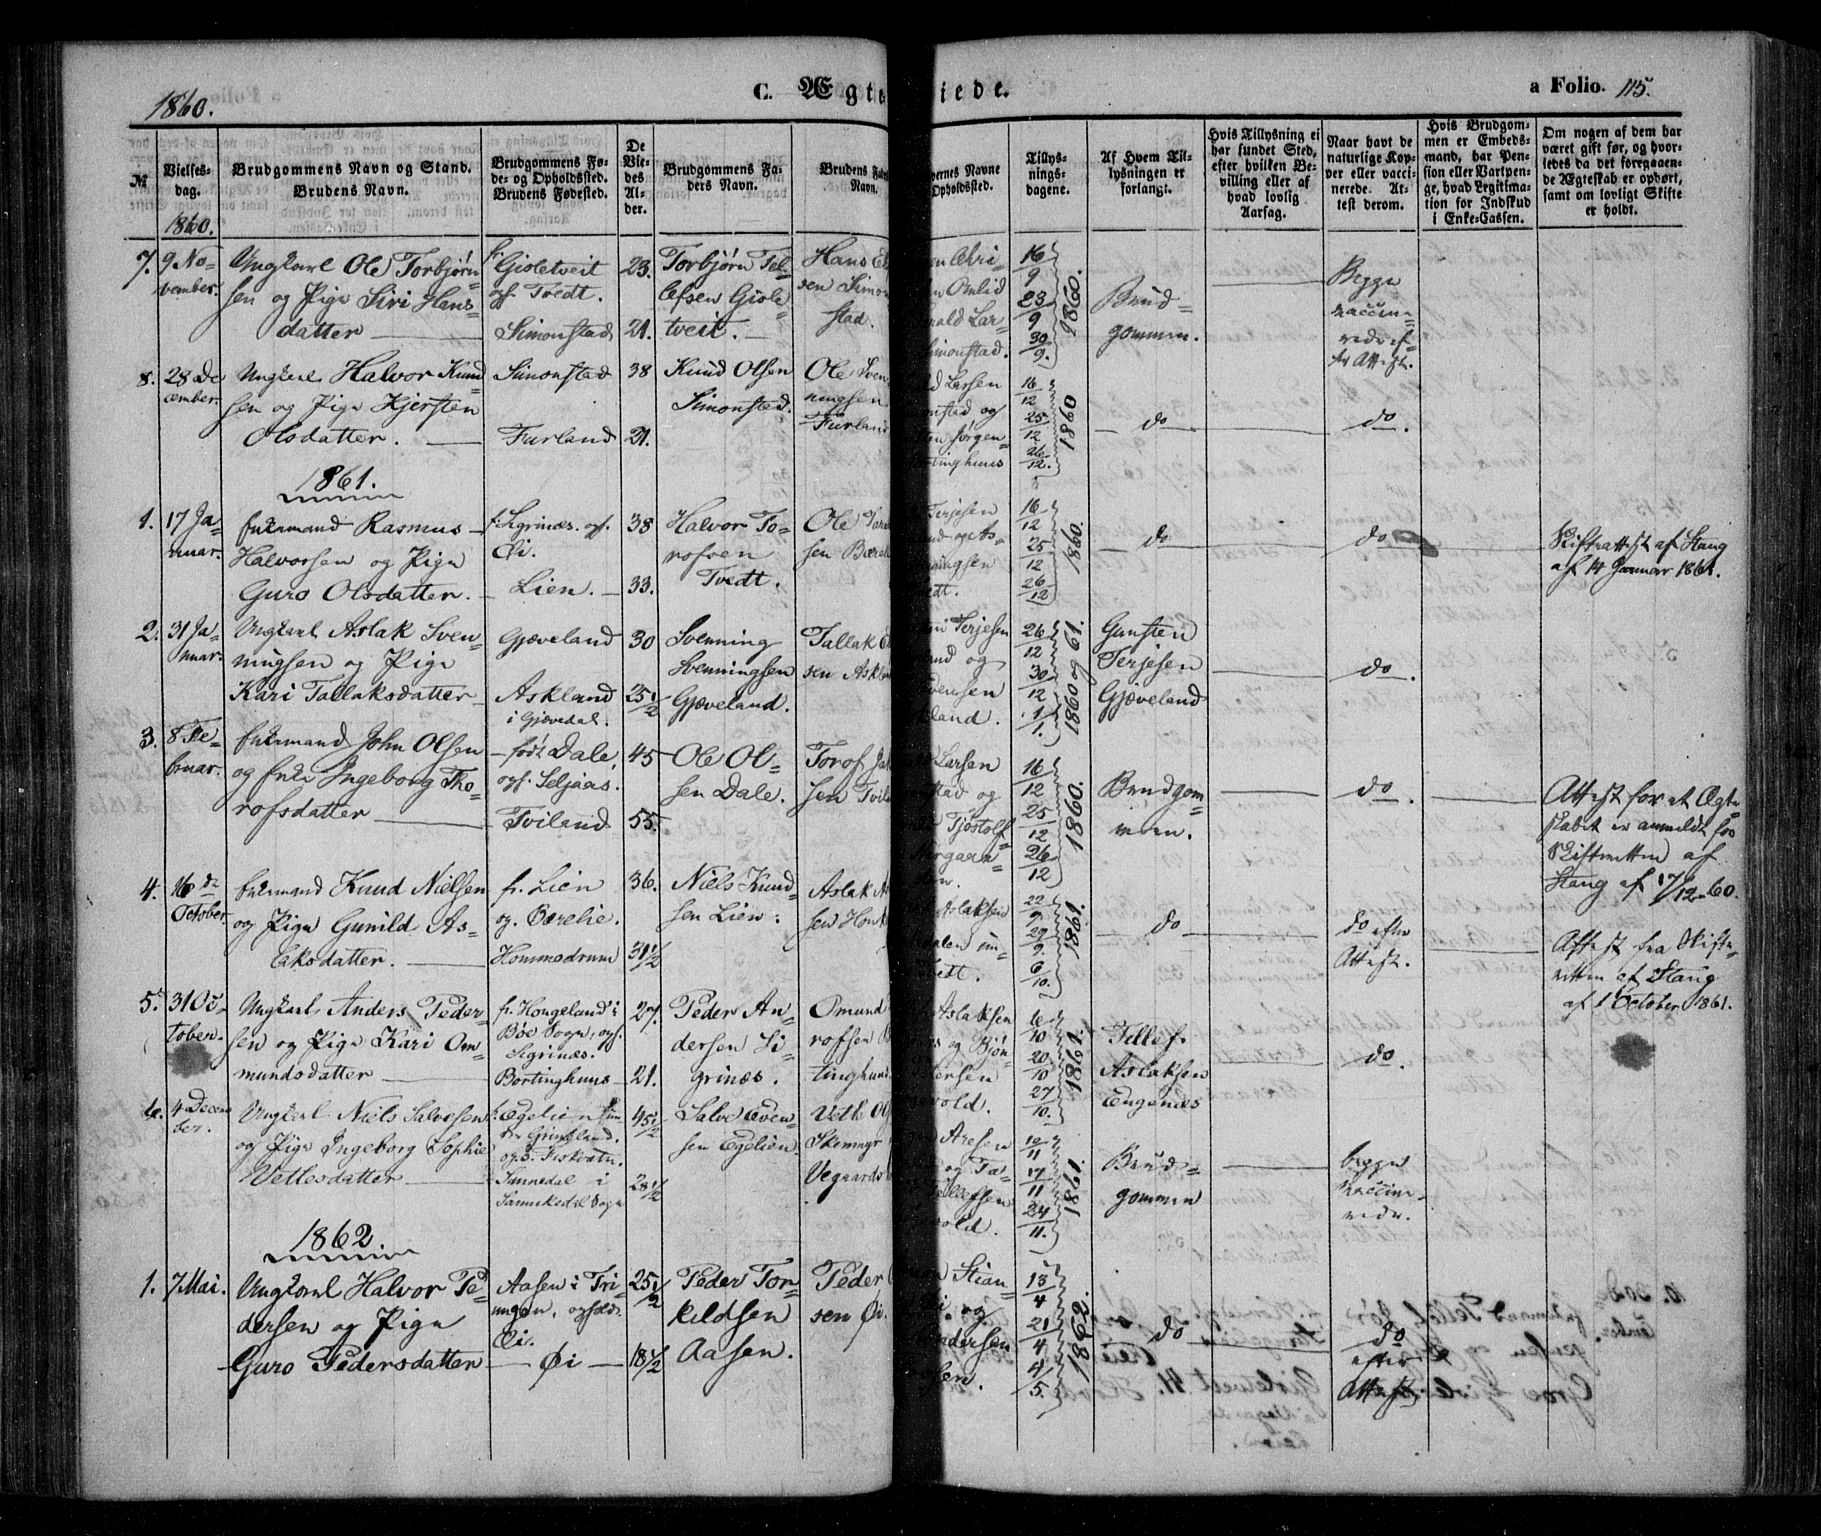 1860.
C. Ægte
iede.
a Folio. 115.
№
Vielses-
dag.
Brudgommens Navn og Stand.
Brudens Navn.
Brudgommens Fø-
de- og Opholdssted.
Brudens Fødested.
De
Vie-
des
Al-
der.
Brudgommens Fa-
ders Navn.
Brudens Fa
Navn.
ernes Navne
Opholdssted.
Tillys-
nings-
dagene.
Af Hvem Til-
lysningen er
forlangt.
Hvis Tillysning ei
har fundet Sted,
efter hvilken Be-
villing eller af
hvad lovlig
Aarsag.
Naar havt de
naturlige Kop-
per eller vacci-
nerede. At-
test derom.
Hvis Brudgom-
men er Embeds-
mand, har Pen-
sion eller Vartpen-
ge, hvad Legitima-
tion for Indskud
i Enke-Cassen.
Om nogen af dem har
været gift før, og hvor-
ledes da det foregaaen-
de Ægteskab er ophørt,
samt om lovligt Skifte
er holdt.
1860.
7. 9 No-
vember.
Ungkarl Ole Torbjørn-
sen og Pige Siri Hans-
datter
f. Gioletveit
og Tvedt.
Simonstad
23.
21.
Torbjørn Tel-
lefsen Giole-
tveit.
Hans
sen Simon
stad.
Omlid
rald Lar-
Simonstad.
16/9
23/9
30/9.
1860.
Brud-
gommen.
Begge
vaccine-
rede ef-
ter Attest.
8. 28 De
cember.
Ungkarl Halvor Knud
sen og Pige Kjersten
Olsdatter.
Simonstad
Furland
38
21.
Knud Olsen
Simonstad.
Ole Sven
ningsen
Furland
Larsen
nstad og
Jørgen-
tinghuus
16/12
25/12
26/12.
1860
do
do.
1861.
1. 17 Ja-
nuar.
Enkemand Rasmus
Halvorsen og Pige
Guro Olsdatter.
f. Sigrinæs. og
Øi.
Lien.
38
33.
Halvor To-
rofsen
Tvedt.
Ole
sen Bærel
Terjesen
nd og As-
ningsen
edt.
16/12
25/12
26/12
1860.
do
do
Skifteattest af Stang
af 14 Januar 1861.
2. 31 Ja-
nuar.
Ungkarl Aslak Sven-
ningsen og Pige
Kari Tallaksdatter
Gjøveland
Askland
i Gjøvedal.
30
25 1/2
Svenning
Svenningsen
Gjøveland.
Tallak
sen Askl
Terjesen
and og
vensen
land.
26/12
30/12
1/1.
1860 og 61.
Gunsten
Terjesen
Gjøveland
do.
3. 8 Fe-
bruar.
Enkemand John Olsen
og Enke Ingeborg Tho-
rofsdatter
født Dale,
og. Seljaas.
Tviland
45
55.
Ole Ol-
sen Dale.
Torof
sen Tvil
Larsen
stad og
Tjøstolf
16/12
25/12
26/12
1860.
Brudgom-
men.
do.
Attest for at Ægte-
skabet er anmeldt for
Skifteretten af
Stang af 17/12-60.
4. 16 de
October
Enkemand Knud Nielsen
og Pige Gunild As-
laksdatter.
f. Lien
og. Bærelie.
Hommedrum
36.
31 1/2
Niels Knud-
sen Lien.
Aslak
sen
Aslaksen
22/9
29/9
6/10.
1861.
do
do efter
Attest.
Attest fra Skifte-
retten af Stang
af 1 October 1861.
5. 31 Oc-
tober.
Ungkarl Anders Peder-
sen og Pige Kari Om-
mundsdatter
fr. Hougeland i
Bøe Sogn, og.
Sigrinæs.
Bortinghuus
27.
21.
Peder An-
dersen Si-
grinæs.
Omund
rofsen
tinghuus
Aslaksen
og Bjøn-
ersen
vold.
6/10
20/10
27/10.
1861.
Tellef
Aslaksen
Engenæs
do
6. 4 Decem
ber.
Ungkarl Niels Salvesen
og Pige Ingeborg Sophie
Vettesdatter
Sannedal i
Sannikedal Sogn
45 1/2
28 1/2
Salve Even-
sen Egelien.
Vetle
Skemmyr
Vegaards
Aresen
og Ta-
Tellefsen
vold.
10/11
17/11
24/11.
1861.
Brud-
gommen
begge
vaccine-
rede.
1862
1. 7 Mai.
Ungkarl Halvor Pe-
dersen og Pige
Guro Pedersdatter
Aasen i Tri-
ungen,
Øi.
Øi
25 1/2
18 1/2
Peder Tor-
kildsen
Aasen.
Peder
sen Øi.
Stian-
og
edersen
13/4
21/4
4/5.
1862.
do
do
efter
Attest.